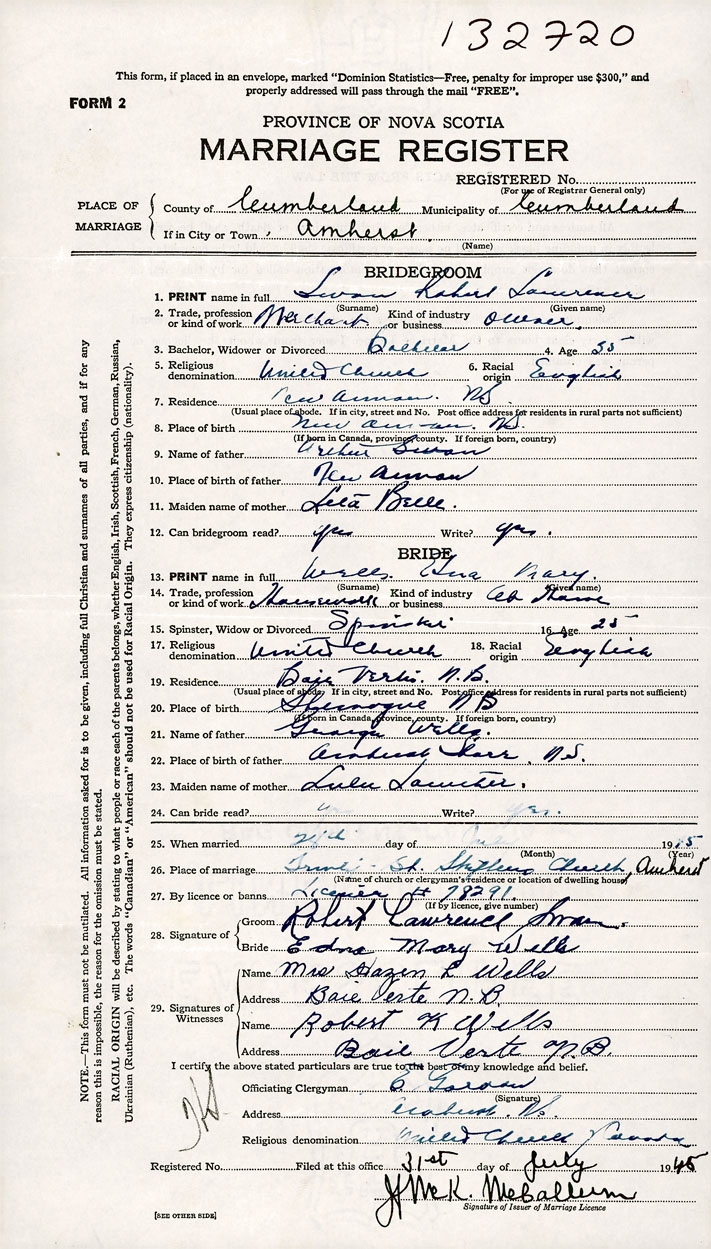 132720
This form, if placed in an envelope, marked "Dominion Statistics—Free, penalty for improper use $300," and
properly addressed will pass through the mail "FREE".
FORM 2
PROVINCE OF NOVA SCOTIA
MARRIAGE REGISTER
REGISTERED No.
(For use of Registrar General only)
PLACE OF MARRIAGE
County of Cumberland Municipality of Cumberland
If in City or Town, Amherst
(Name)
BRIDEGROOM
1. PRINT name in full Swan Robert Lawrence
(Surname) (Given name)
2. Trade, profession or kind of work Merchant Kind of industry or business owner
3. Bachelor, Widower or Divorced Bachelor 4. Age
5. Religious denomination United Church 6. Racial origin English
7. Residence New Annan. NS.
(Usual place of abode. If in city, street and No. Post office address for residents in rural parts not sufficient)
8. Place of birth New Annan. NS.
(If born in Canada, province, county. If foreign born, country)
9. Name of father Swan
10. Place of birth of father New Annan
11. Maiden name of mother Belle.
12. Can bridegroom read? yes Write? yes.
BRIDE
13. PRINT name in full Wells. Edna Mary.
(Surname) (Given name)
14. Trade, profession or kind of work Housework Kind of industry or business At Home
15. Spinster, Widow or Divorced Spinster 16. Age 25
17. Religious denomination United Church 18. Racial origin English
19. Residence Baie Verte. N.B.
(Usual place of abode. If in city, street and No. Post office address for residents in rural parts not sufficient)
20. Place of birth Shemogue NB
(If born in Canada, province, county. If foreign born, country)
21. Name of father George Wells.
22. Place of birth of father Amherst Shore, N.S.
23. Maiden name of mother Lulu
24. Can bride read? yes Write? yes.
25. When married day of 1945
(Month) (Year)
26. Place of marriage Trinity St. Stephens Church, Amherst
(Name of church or clergyman's residence or location of dwelling house)
27. By licence or banns License # 78291.
(If by licence, give number)
28. Signature of
Groom Robert Lawrence Swan.
Bride Edna Mary Wells
29. Signatures of Witnesses
Name Mrs Hazen L Wells
Address Baie Verte N.B.
Name Robert K Wells
Address Baie Verte N.B.
I certify the above stated particulars are true to the best of my knowledge and belief.
Officiating Clergyman
(Signature)
Address Amherst. NS.
Religious denomination United Church Canada
Registered No. Filed at this office 31st day of July 1945
J McK. McCallum
Signature of Issuer of Marriage Licence
[SEE OTHER SIDE]
NOTE.—This form must not be mutilated. All information asked for is to be given, including full Christian and surnames of all parties, and if for any
reason this is impossible, the reason for the omission must be stated.
RACIAL ORIGIN will be described by stating to what people or race each of the parents belongs, whether English, Irish, Scottish, French, German, Russian,
Ukrainian (Ruthenian), etc. The words "Canadian" or "American" should not be used for Racial Origin. They express citizenship (nationality).